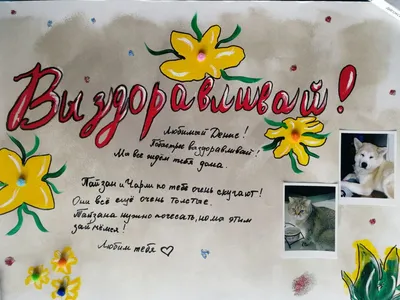 Выздоравливай!
Любимый Денис!
Побыстрее выздоравливай!
Мы все ждём тебя дома.
Тайзан и Чарли по тебе очень скучают!
Они всё ещё очень толстые.
Тайзана нужно почесать, но мы этим
займёмся!
Любим тебя